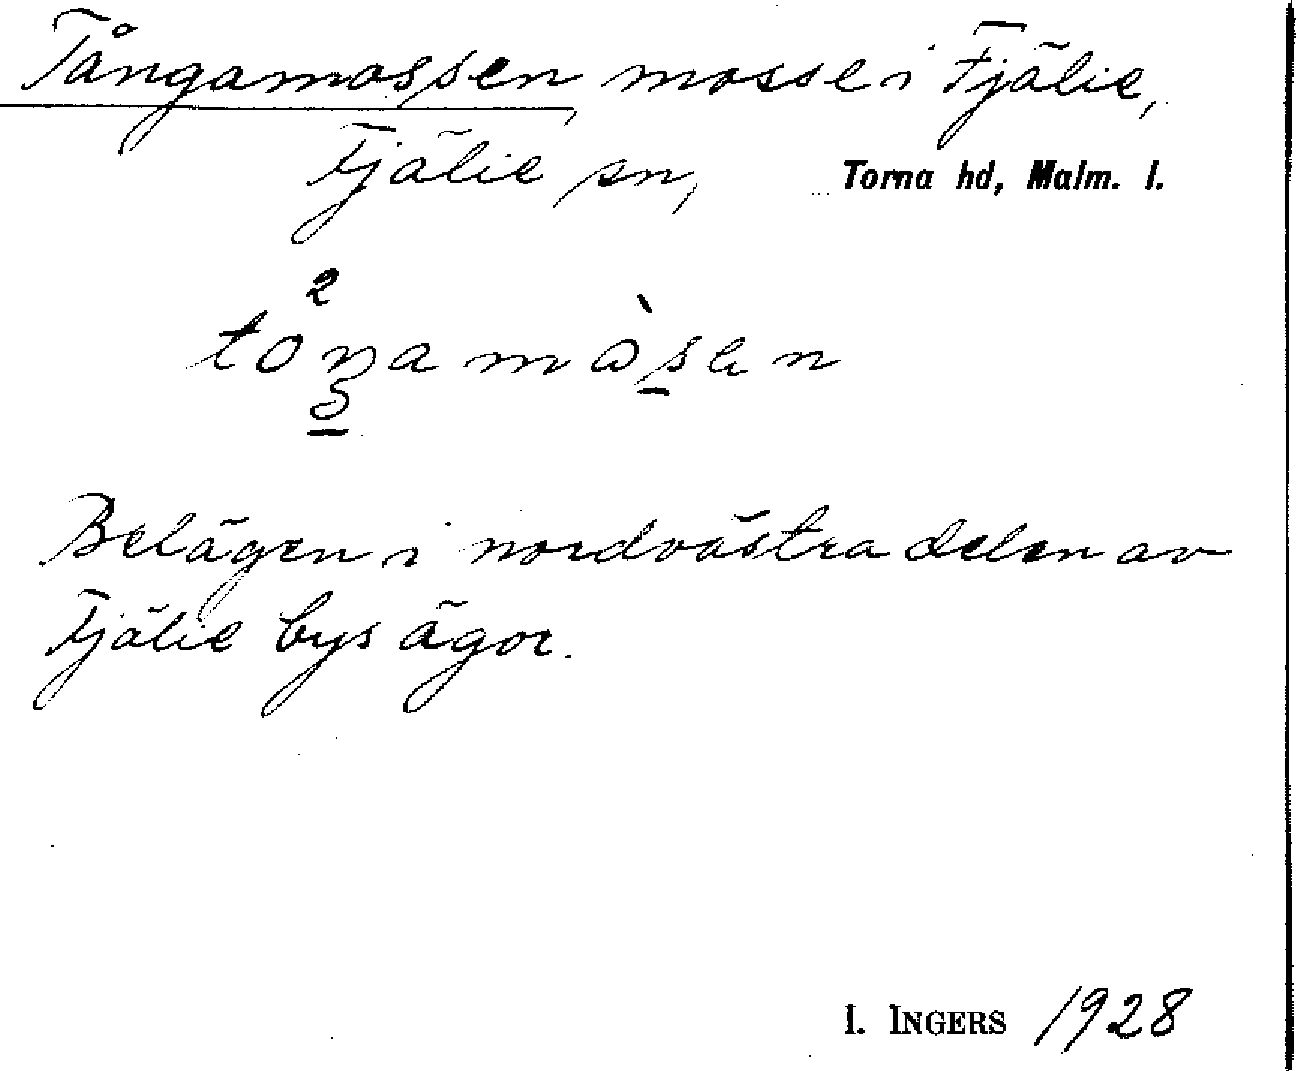 Tångamossen, mosse i Fjälie,
Fjälie sn, Torna hd, Malm. l.
Belägen i nordvästra delen av
Fjälie bys ägor.
I. INGERS 1928